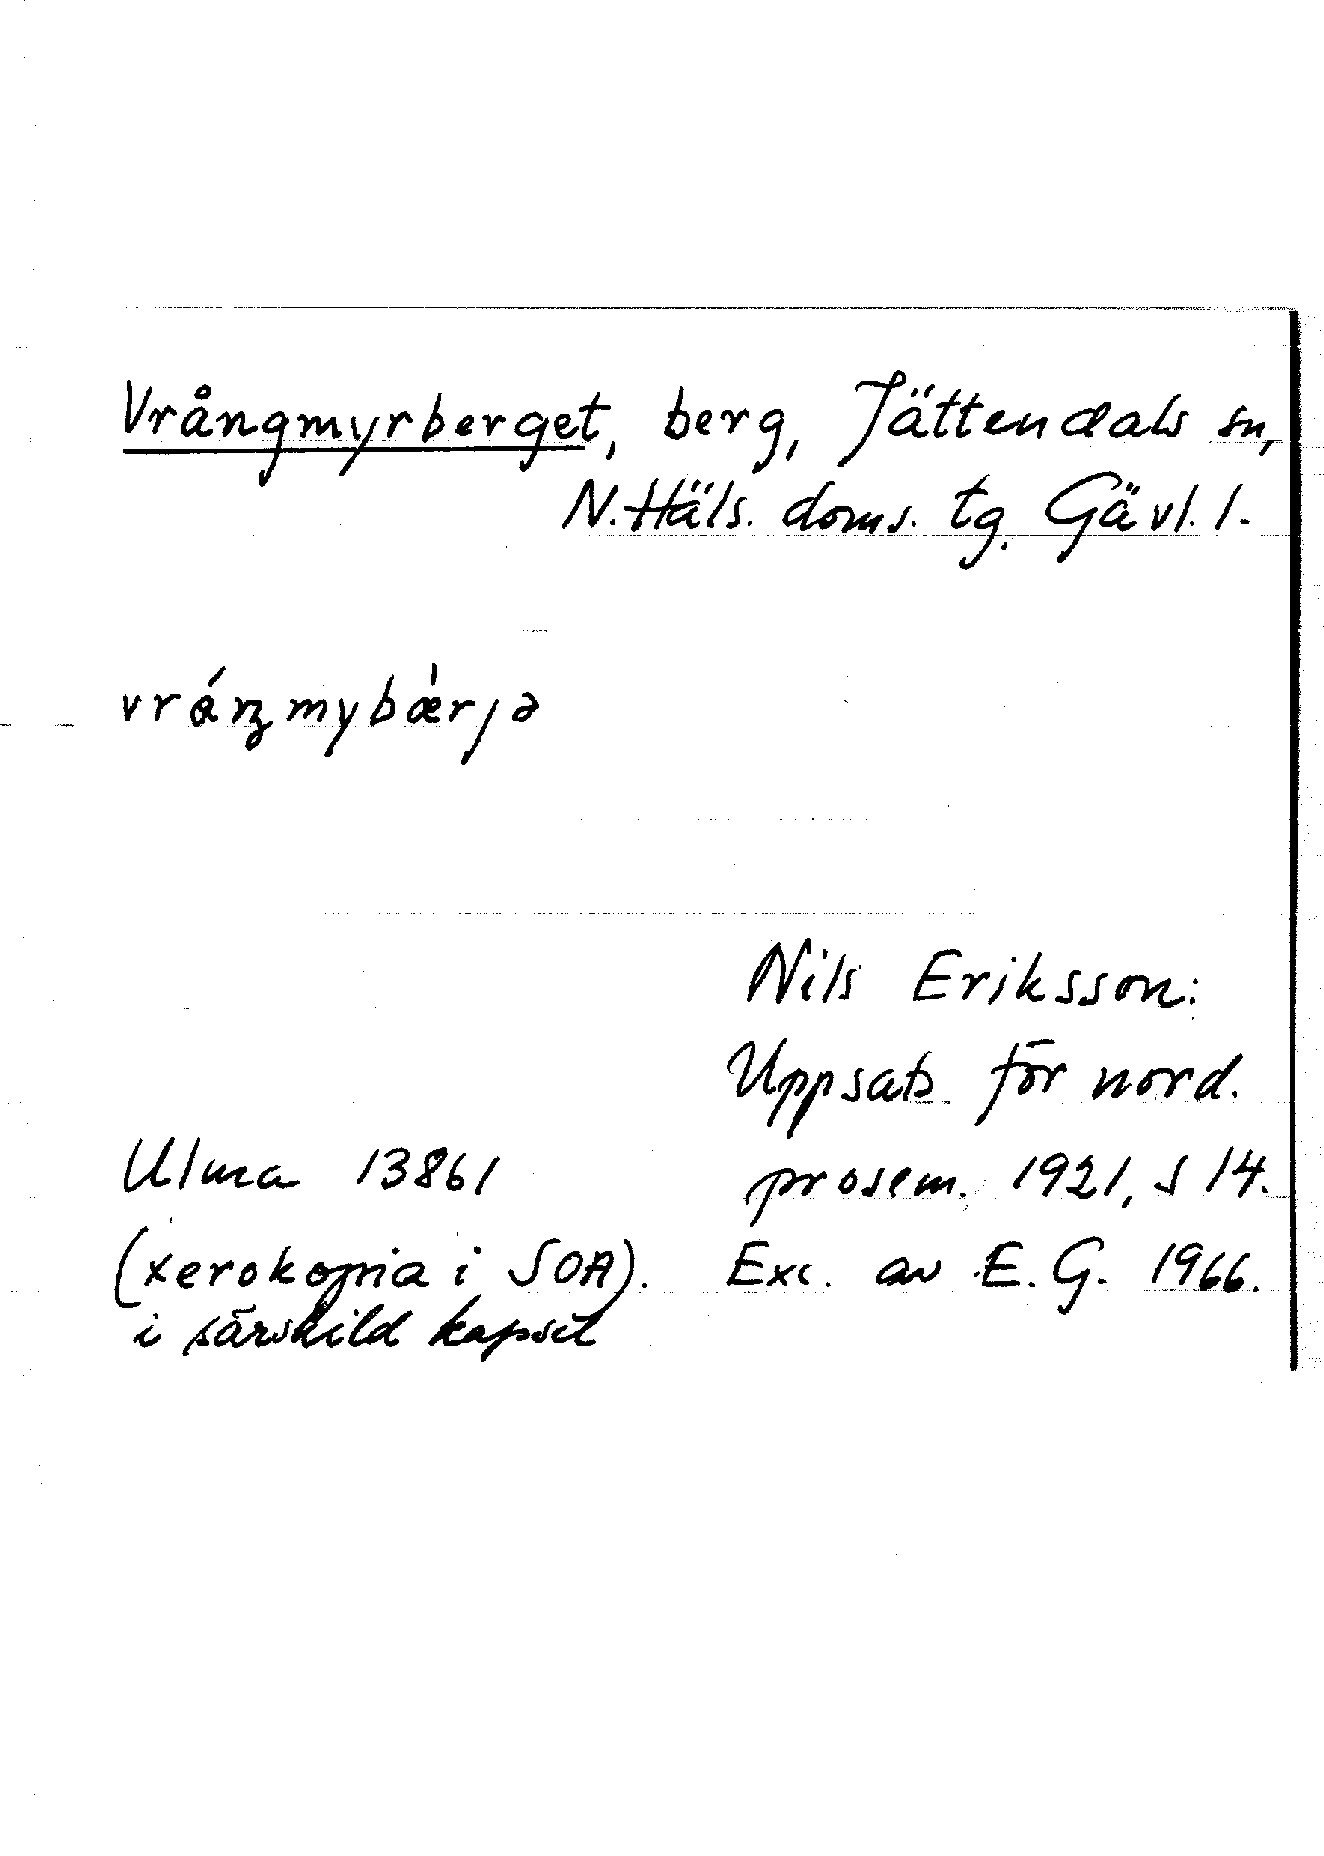 Vrångmyrberget, berg, Jättendals sn,
N. Häls. doms. tg. Gävl. l.
vráŋmybæ̀rjə
Nils Eriksson:
Uppsats för nord.
Ulma 13861 prosem. 1921, s 14.
(xerokopia i SOA). Exc. av E. G. 1966.
i särskild kapsel